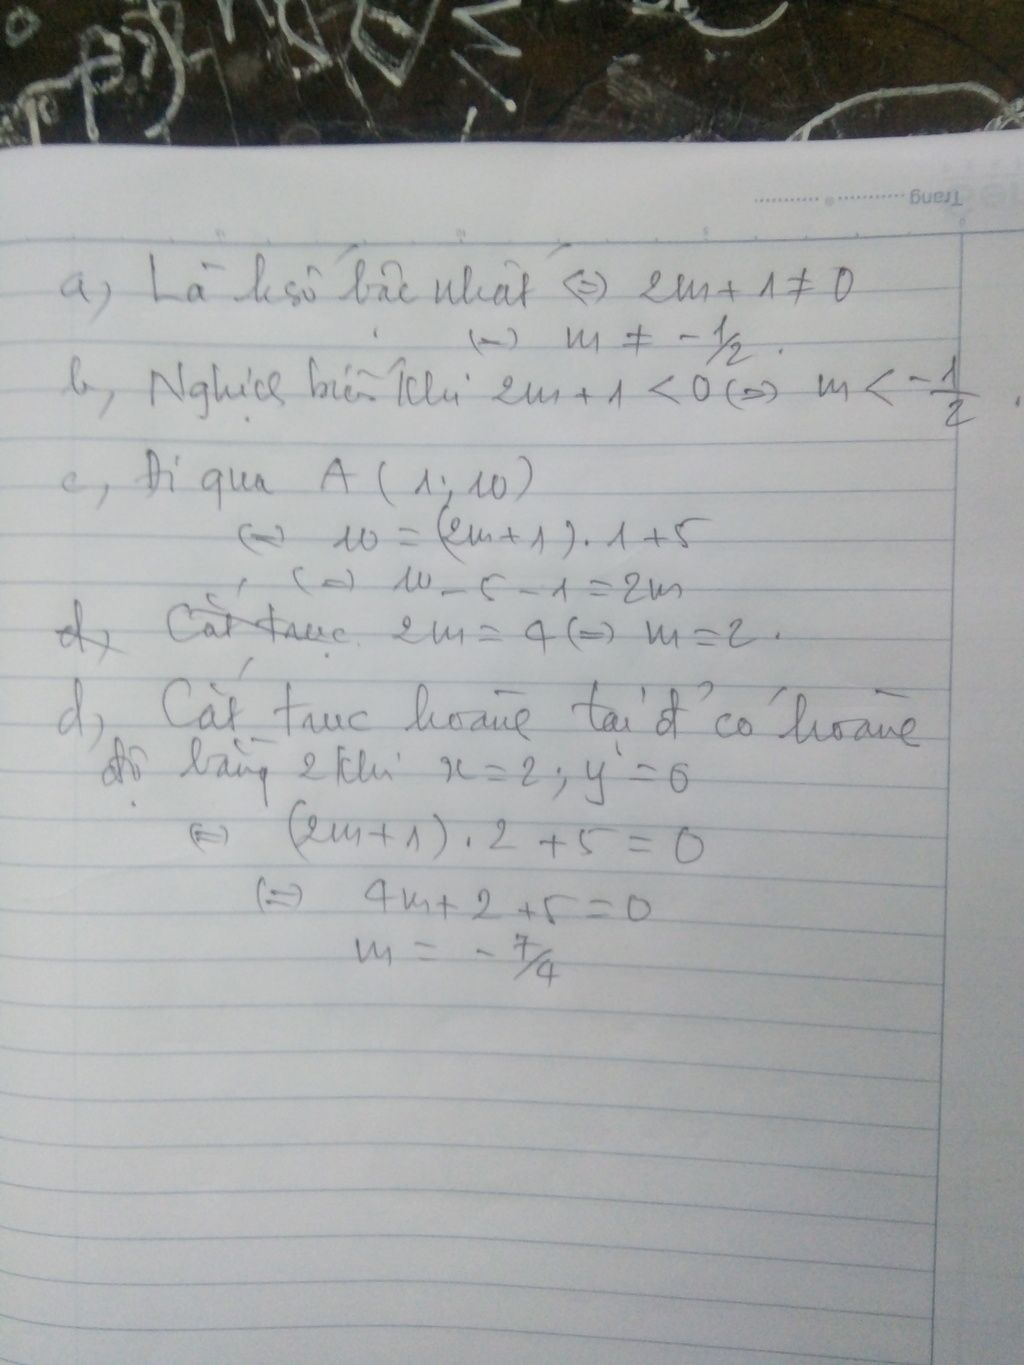 Trang
a, Là hsố bậc nhất ⇔ 2m + 1 ≠ 0
⇔ m ≠ - 1/2.
b, Nghịch biến khi 2m + 1 < 0 ⇔ m < - 1/2.
c, Đi qua A (1; 10)
⇔ 10 = (2m + 1). 1 + 5
⇔ 10 - 5 - 1 = 2m
d, Cắt trục 2m = 4 ⇔ m = 2.
d, Cắt trục hoành tại đ' có hoành
độ bằng 2 khi x = 2; y = 0
⇔ (2m + 1). 2 + 5 = 0
⇔ 4m + 2 + 5 = 0
m = - 7/4